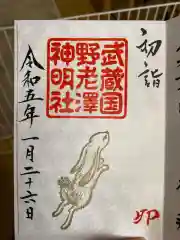 初詣
武蔵国
野老澤
神明社
令和五年一月二十六日
卯